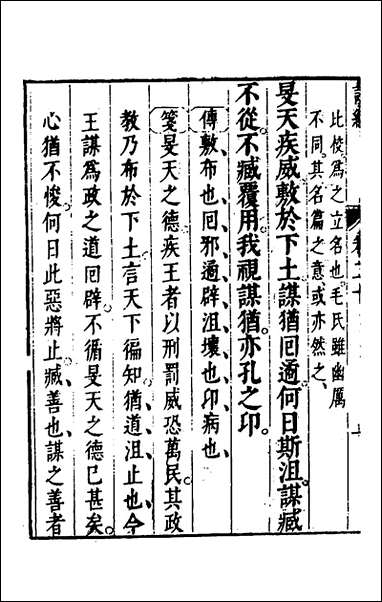 比校爲之立名也毛氏雖幽厲
不同其名篇之意或亦然之、
旻天疾威敷於下土謀猶回遹何日斯沮。謀臧
不從不臧覆用我視謀猶亦孔之卭。
傳敷布也、回邪、遹辟、沮壞也、卭病也、
箋旻天之德疾王者以刑罰威恐萬民、其政
教乃布於下土、言天下徧知、猶道沮止也、今
王謀爲政之道回辟、不循旻天之德已甚矣、
心猶不悛、何日此惡將止、臧善也、謀之善者